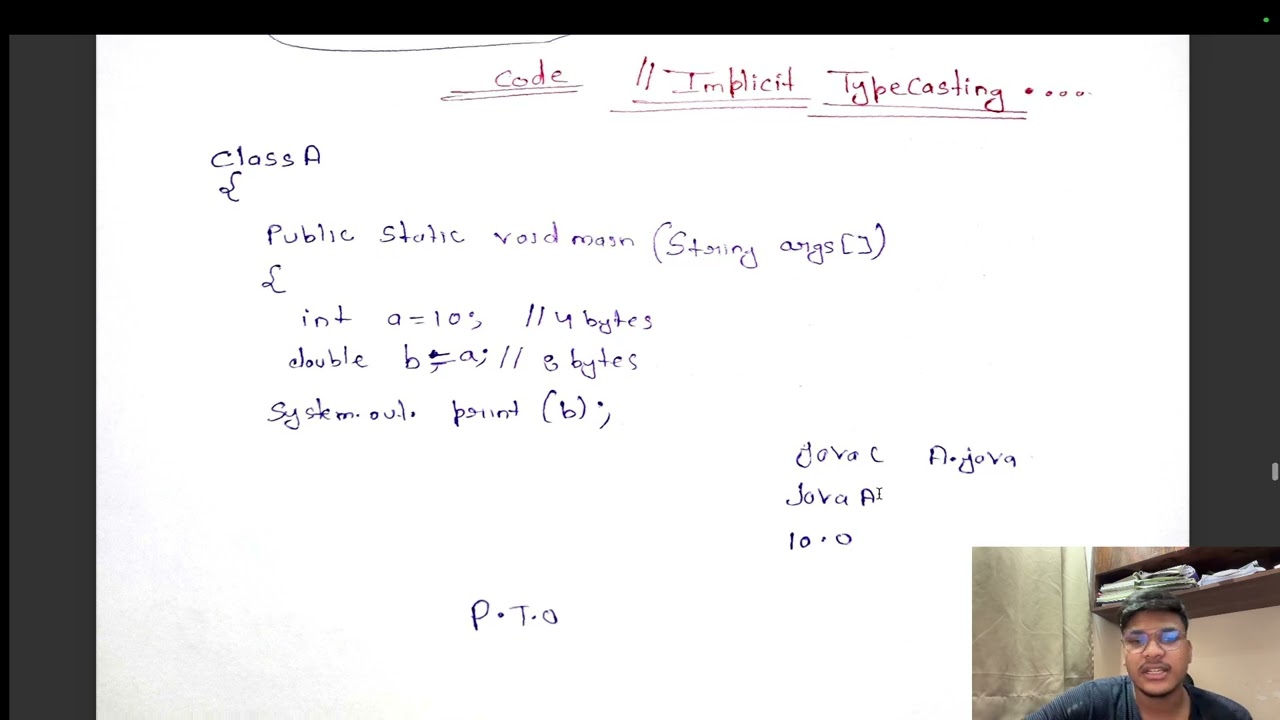 Code // Implicit Typecasting .....
Class A
{
Public Static void main (String args[])
{
int a=10; // 4 bytes
double b=a; // 8 bytes
System.out. print (b);
Java C A.java
Java A
10.0
P.T.O